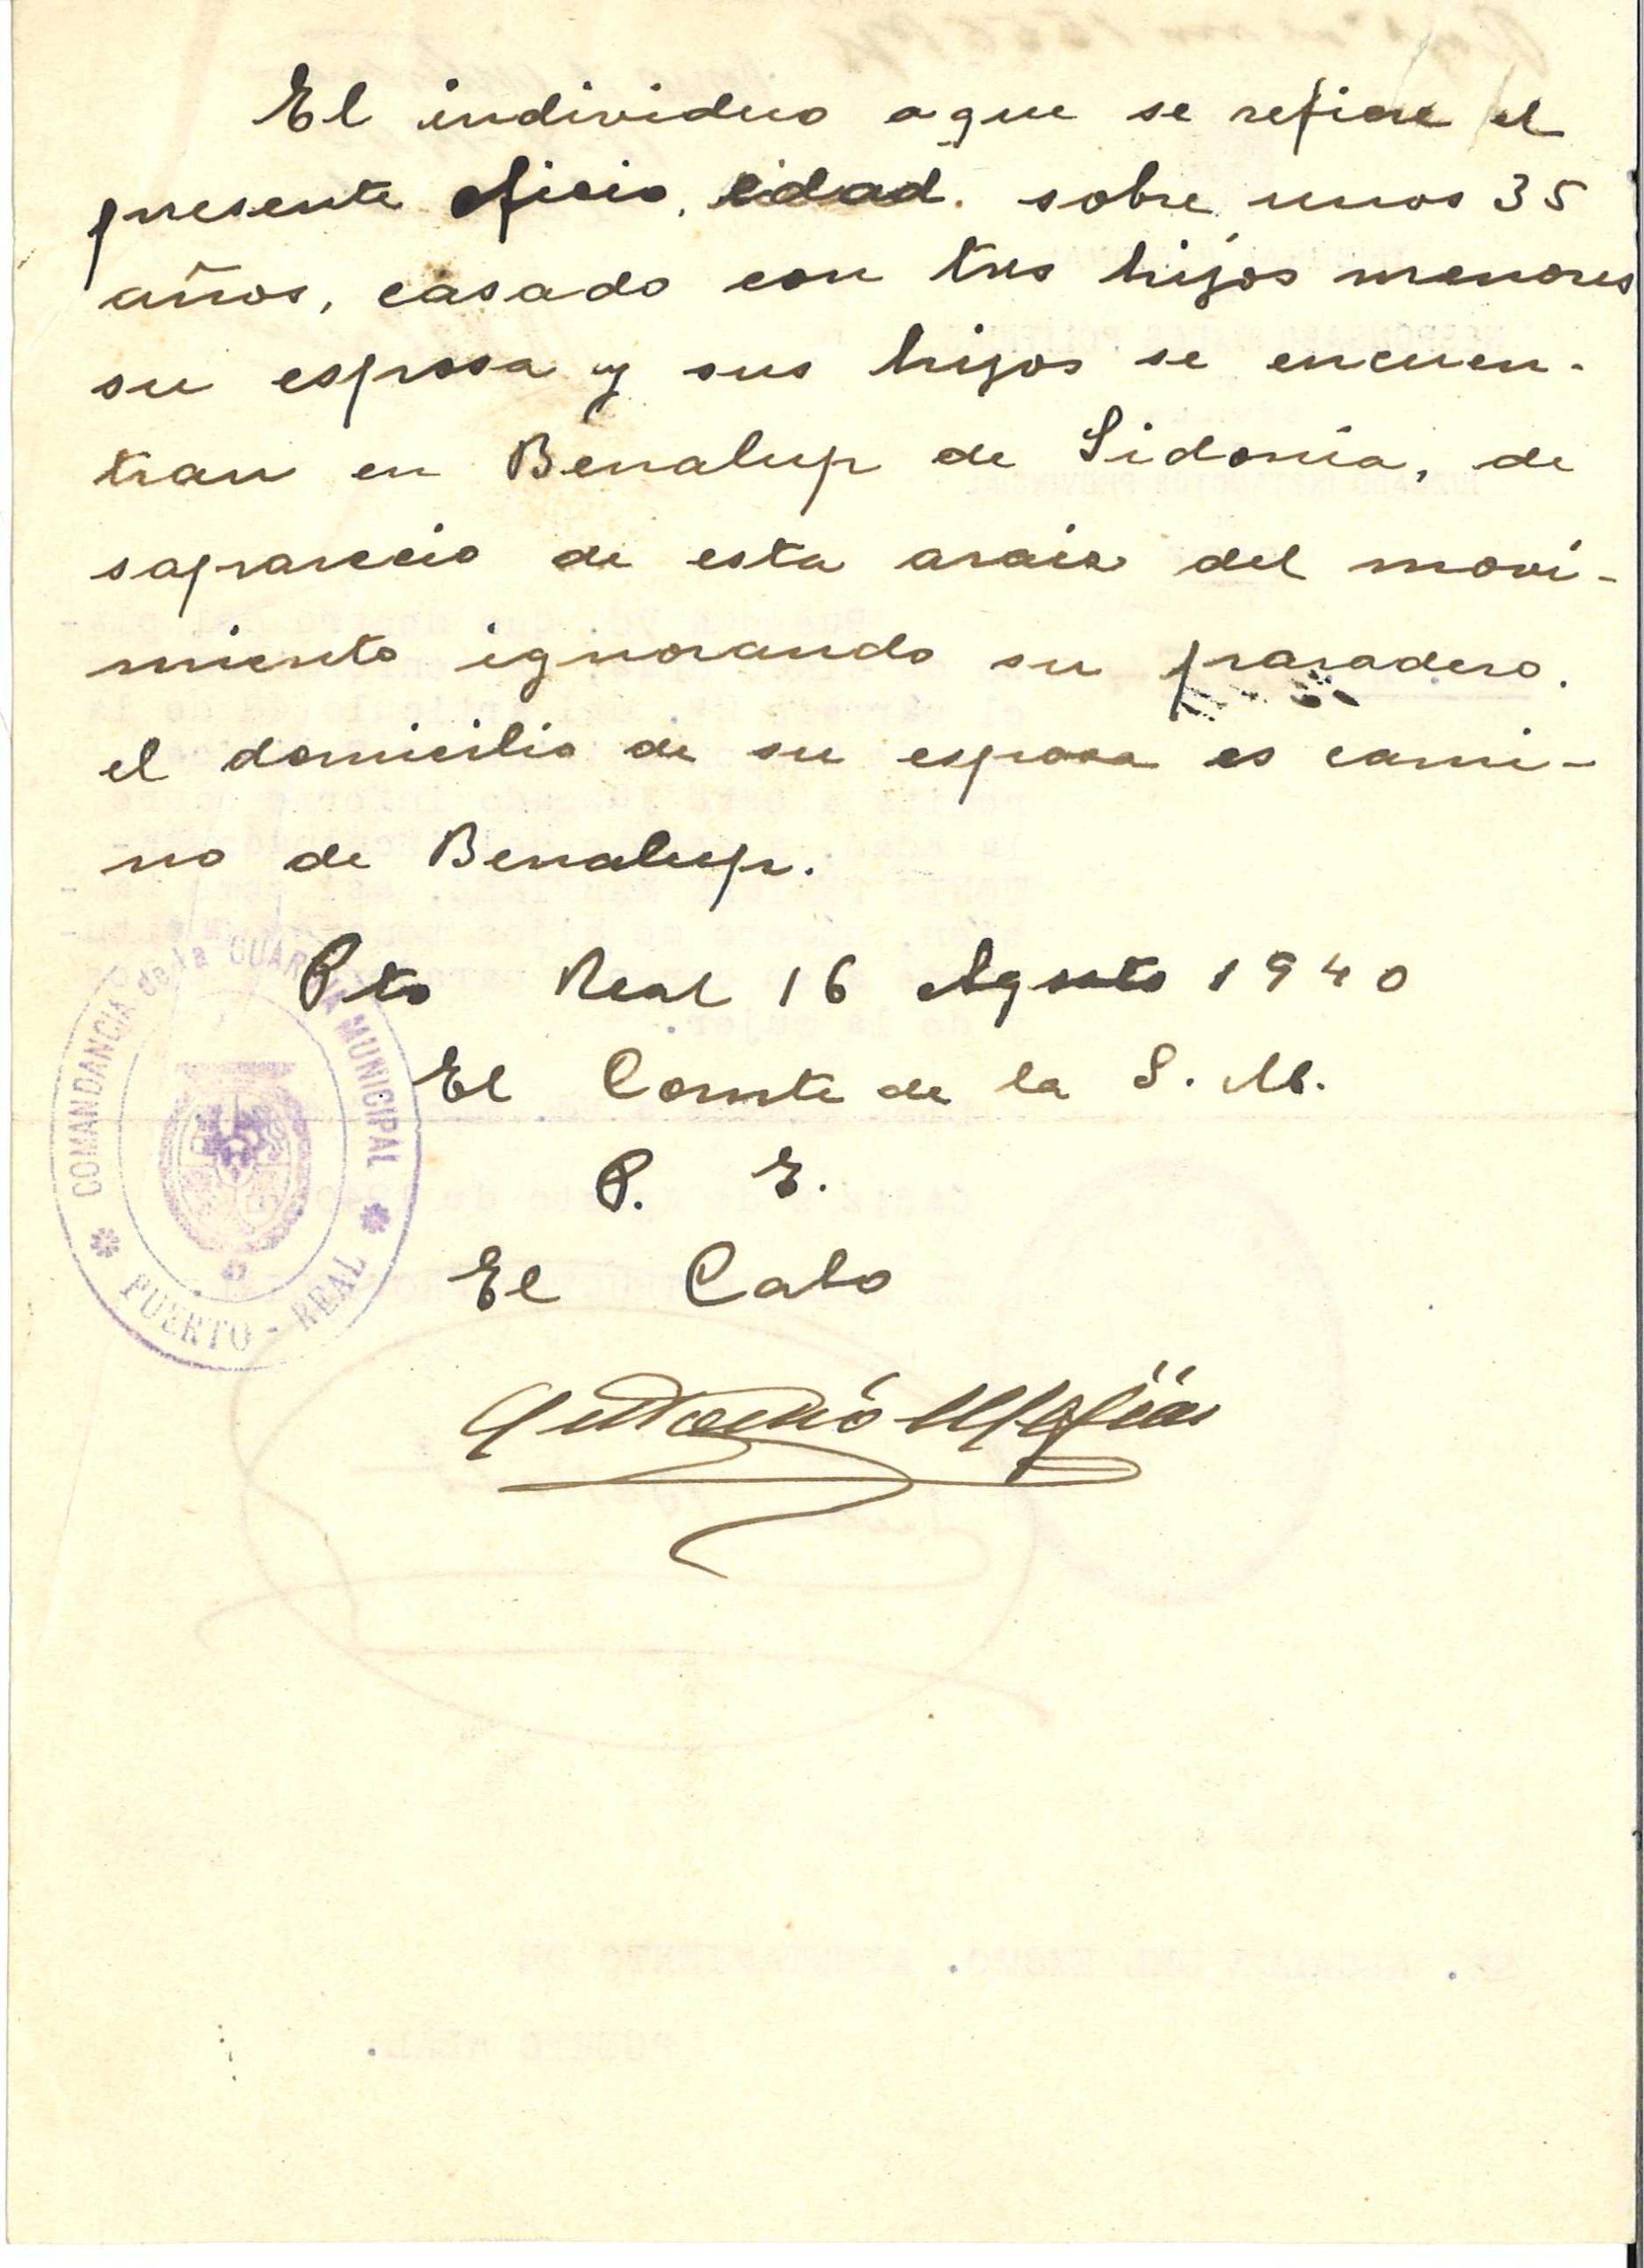 El individuo aque se refiere el
presente oficio, edad. sobre unos 35
años, casado con tres hijos menores
su esposa y sus hijos se encuen-
tran en Benalup de Sidonia, de
saparecio de esta araiz del movi-
miento ignorando su paradero.
el domicilio de su esposa es cami-
no de Benalup.
Pto Real 16 Agosto 1940
El Comte de la G. M.
P. E.
El Cabo
Antonio
COMANDANCIA de la GUARDIA MUNICIPAL
PUERTO - REAL